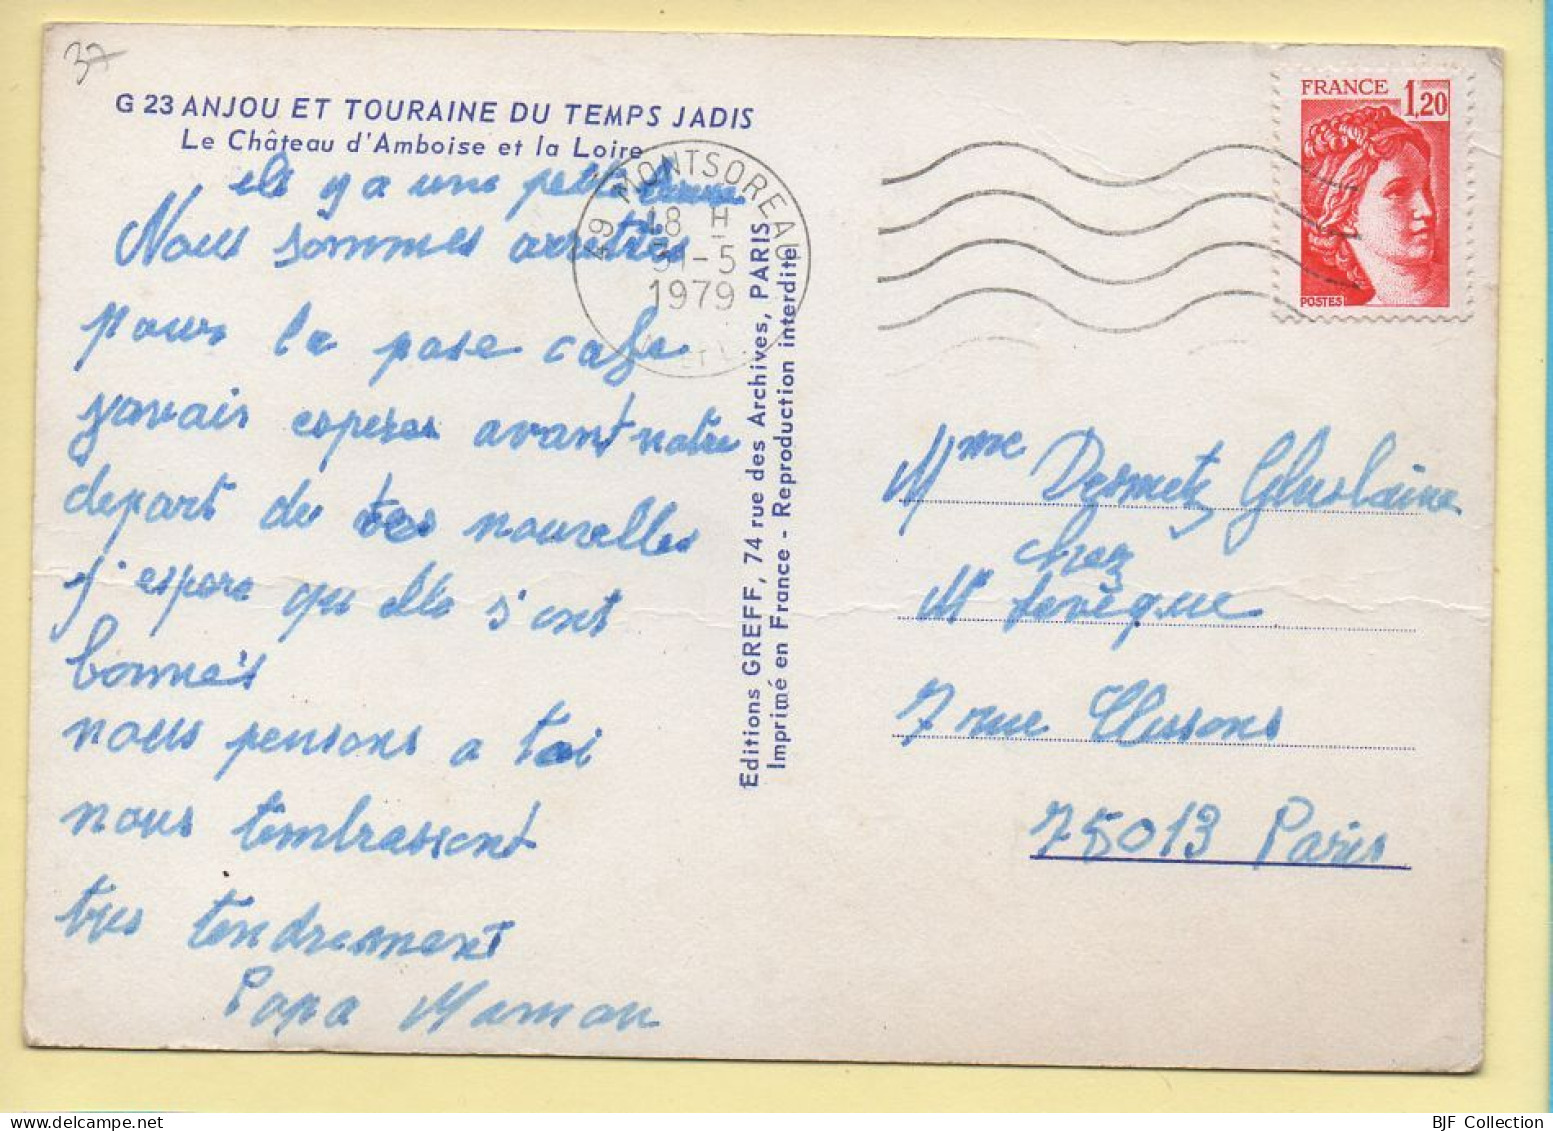 37
G 23 ANJOU ET TOURAINE DU TEMPS JADIS
Le Château d'Amboise et la Loire
ils y a une petite
Nous sommes arretés
pour la pose cafe
javais esperer avant notre
depart de tes nouvelles
j'espere qu elle s'ont
bonne's
nous pensons a toi
nous t'embrassont
tres tendrement
Papa Maman
49 MONTSOREAU
18 H
31-5
1979
M. ET L.
Editions GREFF, 74 rue des Archives, PARIS
Imprimé en France - Reproduction interdite
FRANCE 1,20
POSTES
Mme Desmetz Ghuslaine
chez
Mr Leveque
7 rue Clissons
75013 Paris
BJF Collection